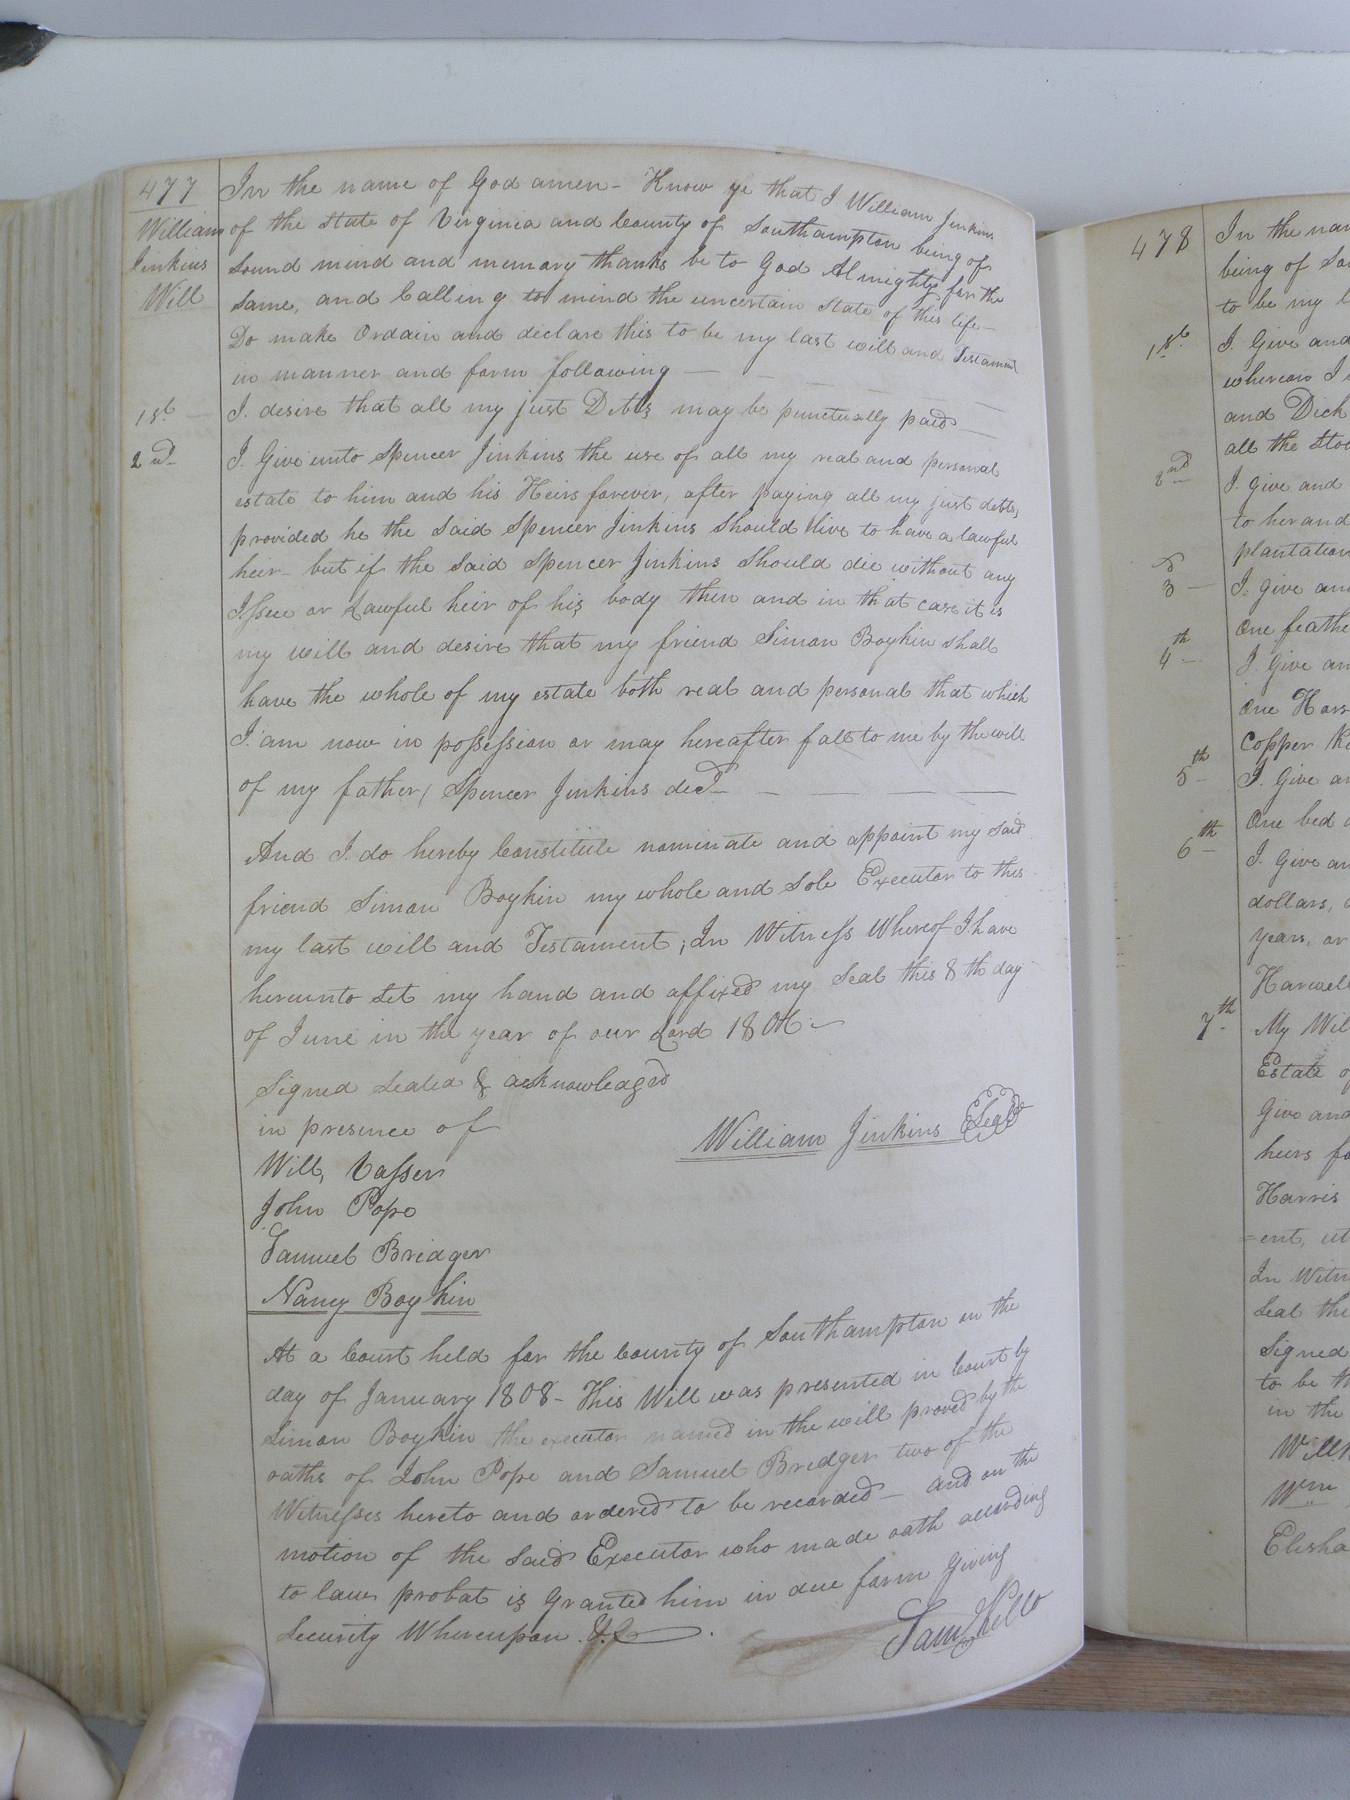 477
William
Jinkins
Will
In the name of God amen - Know ye that I William Jinkins
of the state of Virginia and County of Southampton being of
sound mind and memory thanks be to God Almighty for the
same, and Calling to mind the uncertain state of this life -
Do make Ordain and declare this to be my last will and Testament
in manner and form following -
1st I. desire that all my just Debts may be punctually paid
2nd I. Give unto Spencer Jinkins the use of all my real and personal
estate to him and his Heirs forever, after paying all my just debts,
provided he the said Spencer Jinkins should live to have a lawful
heir - but if the said Spencer Jinkins should die without any
Issue or Lawful heir of his body then and in that case it is
my will and desire that my friend Simon Boykin shall
have the whole of my estate both real and personal that which
I. am now in possession or may hereafter fall to me by the will
of my father, Spencer Jinkins decd
And I. do hereby Constitute nominate and appoint my said
friend Simon Boykin my whole and sole Executor to this
my last will and Testament; In Witness Whereof I. have
hereunto set my hand and affixed my seal this 8th day
of June in the year of our Lord
Signed sealed & acknowledged
in presence of
William Jinkins Seal
Will, Vasser
John Pope
Samuel Bridger
Nancy Boykin
At a Court held for the County of Southampton on the
day of January 1808 - This Will was presented in Court by
Simon Boykin the executor named in the will proved by the
oaths of John Pope and Samuel Bridger two of the
Witnesses hereto and ordered to be recorded - and on the
motion of the said Executor who made oath according
to law probat is granted him in due form Giving
Security Whereupon &c.
Sam Kello
478
In the nam
being of So
to be my l
1st I. Give and
whereon I
and Dick
all the Sto
2nd I. Give and
to her and
plantation
3 I. give an
One feathe
4th I. Give an
One Hors
Copper Ke
5th I. Give an
One bed
6th I. Give an
dollars,
years, or
Harwell
7th My Wil
Estate of
Give and
heirs fo
Harris
=ent,
In Witn
Seal the
Signed
to be th
in the
Will
Wm
Elisha